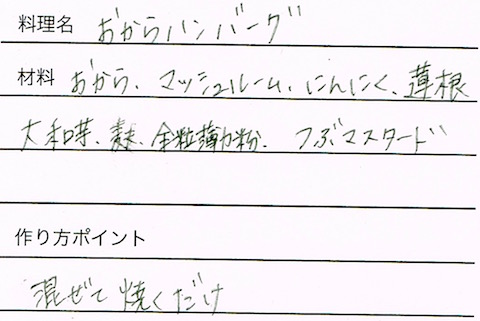 料理名 おからハンバーグ
材料 おから、マッシュルーム、にんにく、蓮根
大和芋、麩、全粒薄力粉、つぶマスタード
作り方ポイント
混ぜて焼くだけ